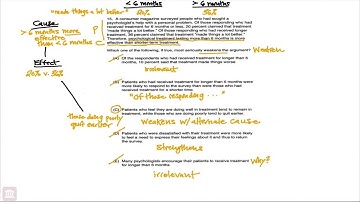 "made things a lot better"
< 6 months
> 6 months
20%
36%
Cause
> 6 months more
effective
than < 6 months
P
Effect
20% vs 36%
those doing poorly
quit earlier
15. A consumer magazine surveyed people who had sought a
psychologist's help with a personal problem. Of those responding who had
received treatment for 6 months or less, 20 percent claimed that treatment
"made things a lot better." Of those responding who had received longer
treatment, 36 percent claimed that treatment "made things a lot better."
Therefore, psychological treatment lasting more than 6 months is more
effective than shorter-term treatment.
Which one of the following, if true, most seriously weakens the argument?
Weaken
(A) Of the respondents who had received treatment for longer than 6
months, 10 percent said that treatment made things worse.
irrelevant
(B) Patients who had received treatment for longer than 6 months were
more likely to respond to the survey than were those who had
received treatment for a shorter time.
"Of those responding . . ."
(C) Patients who feel they are doing well in treatment tend to remain in
treatment, while those who are doing poorly tend to quit earlier.
Weakens w/ alternate cause
(D) Patients who were dissatisfied with their treatment were more likely
to feel a need to express their feelings about it and thus to return the
survey.
Strengthens
(E) Many psychologists encourage their patients to receive treatment
for longer than 6 months.
Why?
irrelevant